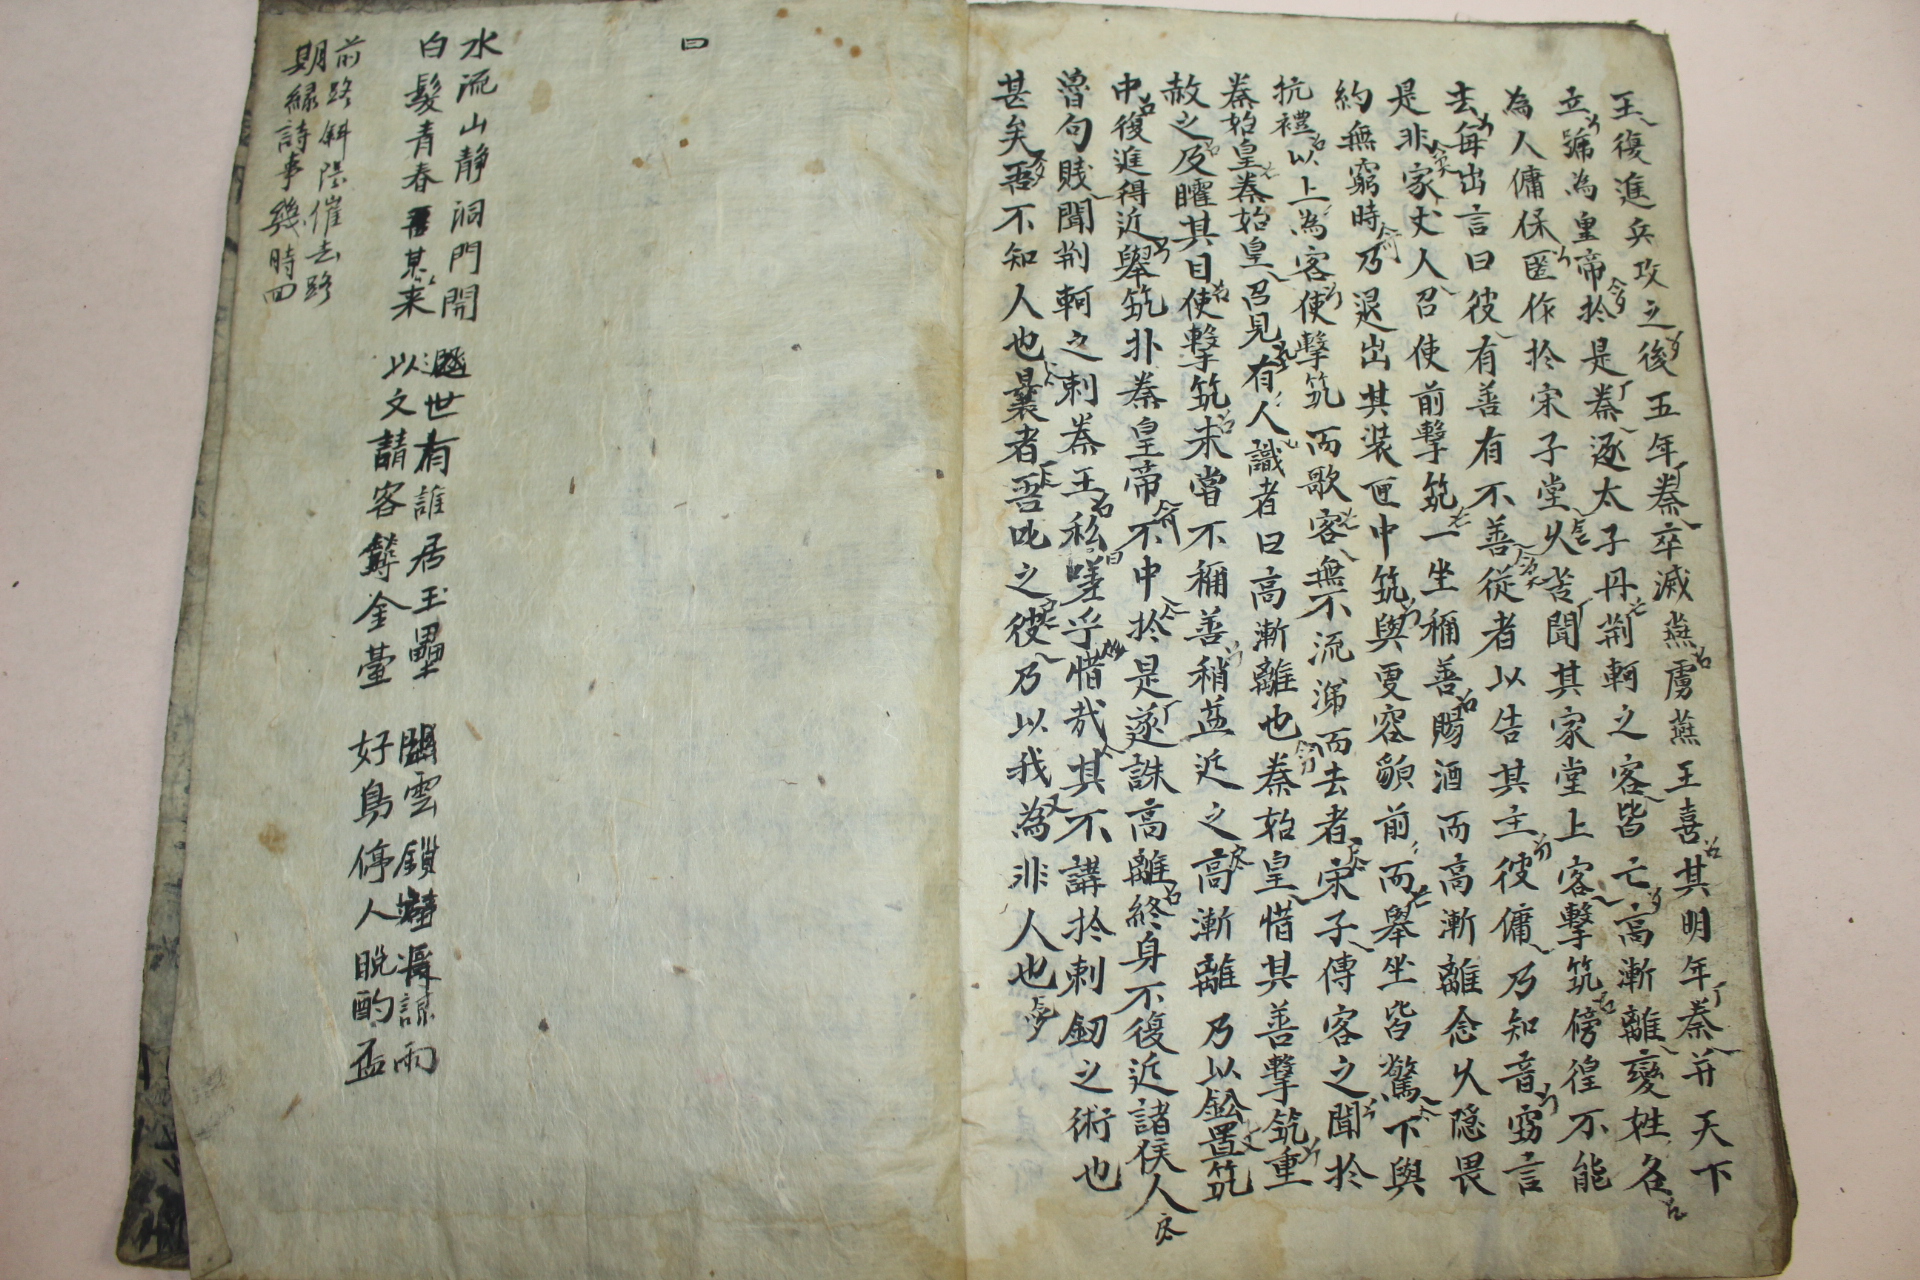 王復進兵攻之後五年秦卒滅燕虜燕王喜其明年秦并天下
立號為皇帝於是秦逐太子丹荊軻之客皆亡高漸離變姓名
為人傭保匿作於宋子堂久苦聞其家堂上客擊筑傍徨不能
去每出言曰彼有善有不善從者以告其主彼傭乃知音竊言
是非家丈人召使前擊筑一坐稱善賜酒而高漸離念久隱畏
約無窮時乃退出其裝匣中筑與更容貌前而舉坐皆驚下與
抗禮以上為客使擊筑而歌客無不流涕而去者宋子傳客之聞於
秦始皇秦始皇召見有人識者曰高漸離也秦始皇惜其善擊筑重
赦之及矐其目使擊筑未嘗不稱善稍益近之高漸離乃以鈆置筑
中復進得近舉筑扑秦皇帝不中於是遂誅高離終身不復近諸侯人
魯句賤聞荊軻之刺秦王私嗟乎惜哉其不講於刺釰之術也
甚矣吾不知人也曩者吾叱之彼乃以我為非人也
曰
水流山靜洞門開 世有誰居玉壘 雲鎖 雨
白髮青春 某來 以文請客 金臺 好鳥停人晩酌盃
前路斜陰催去路
期緣詩事幾時回